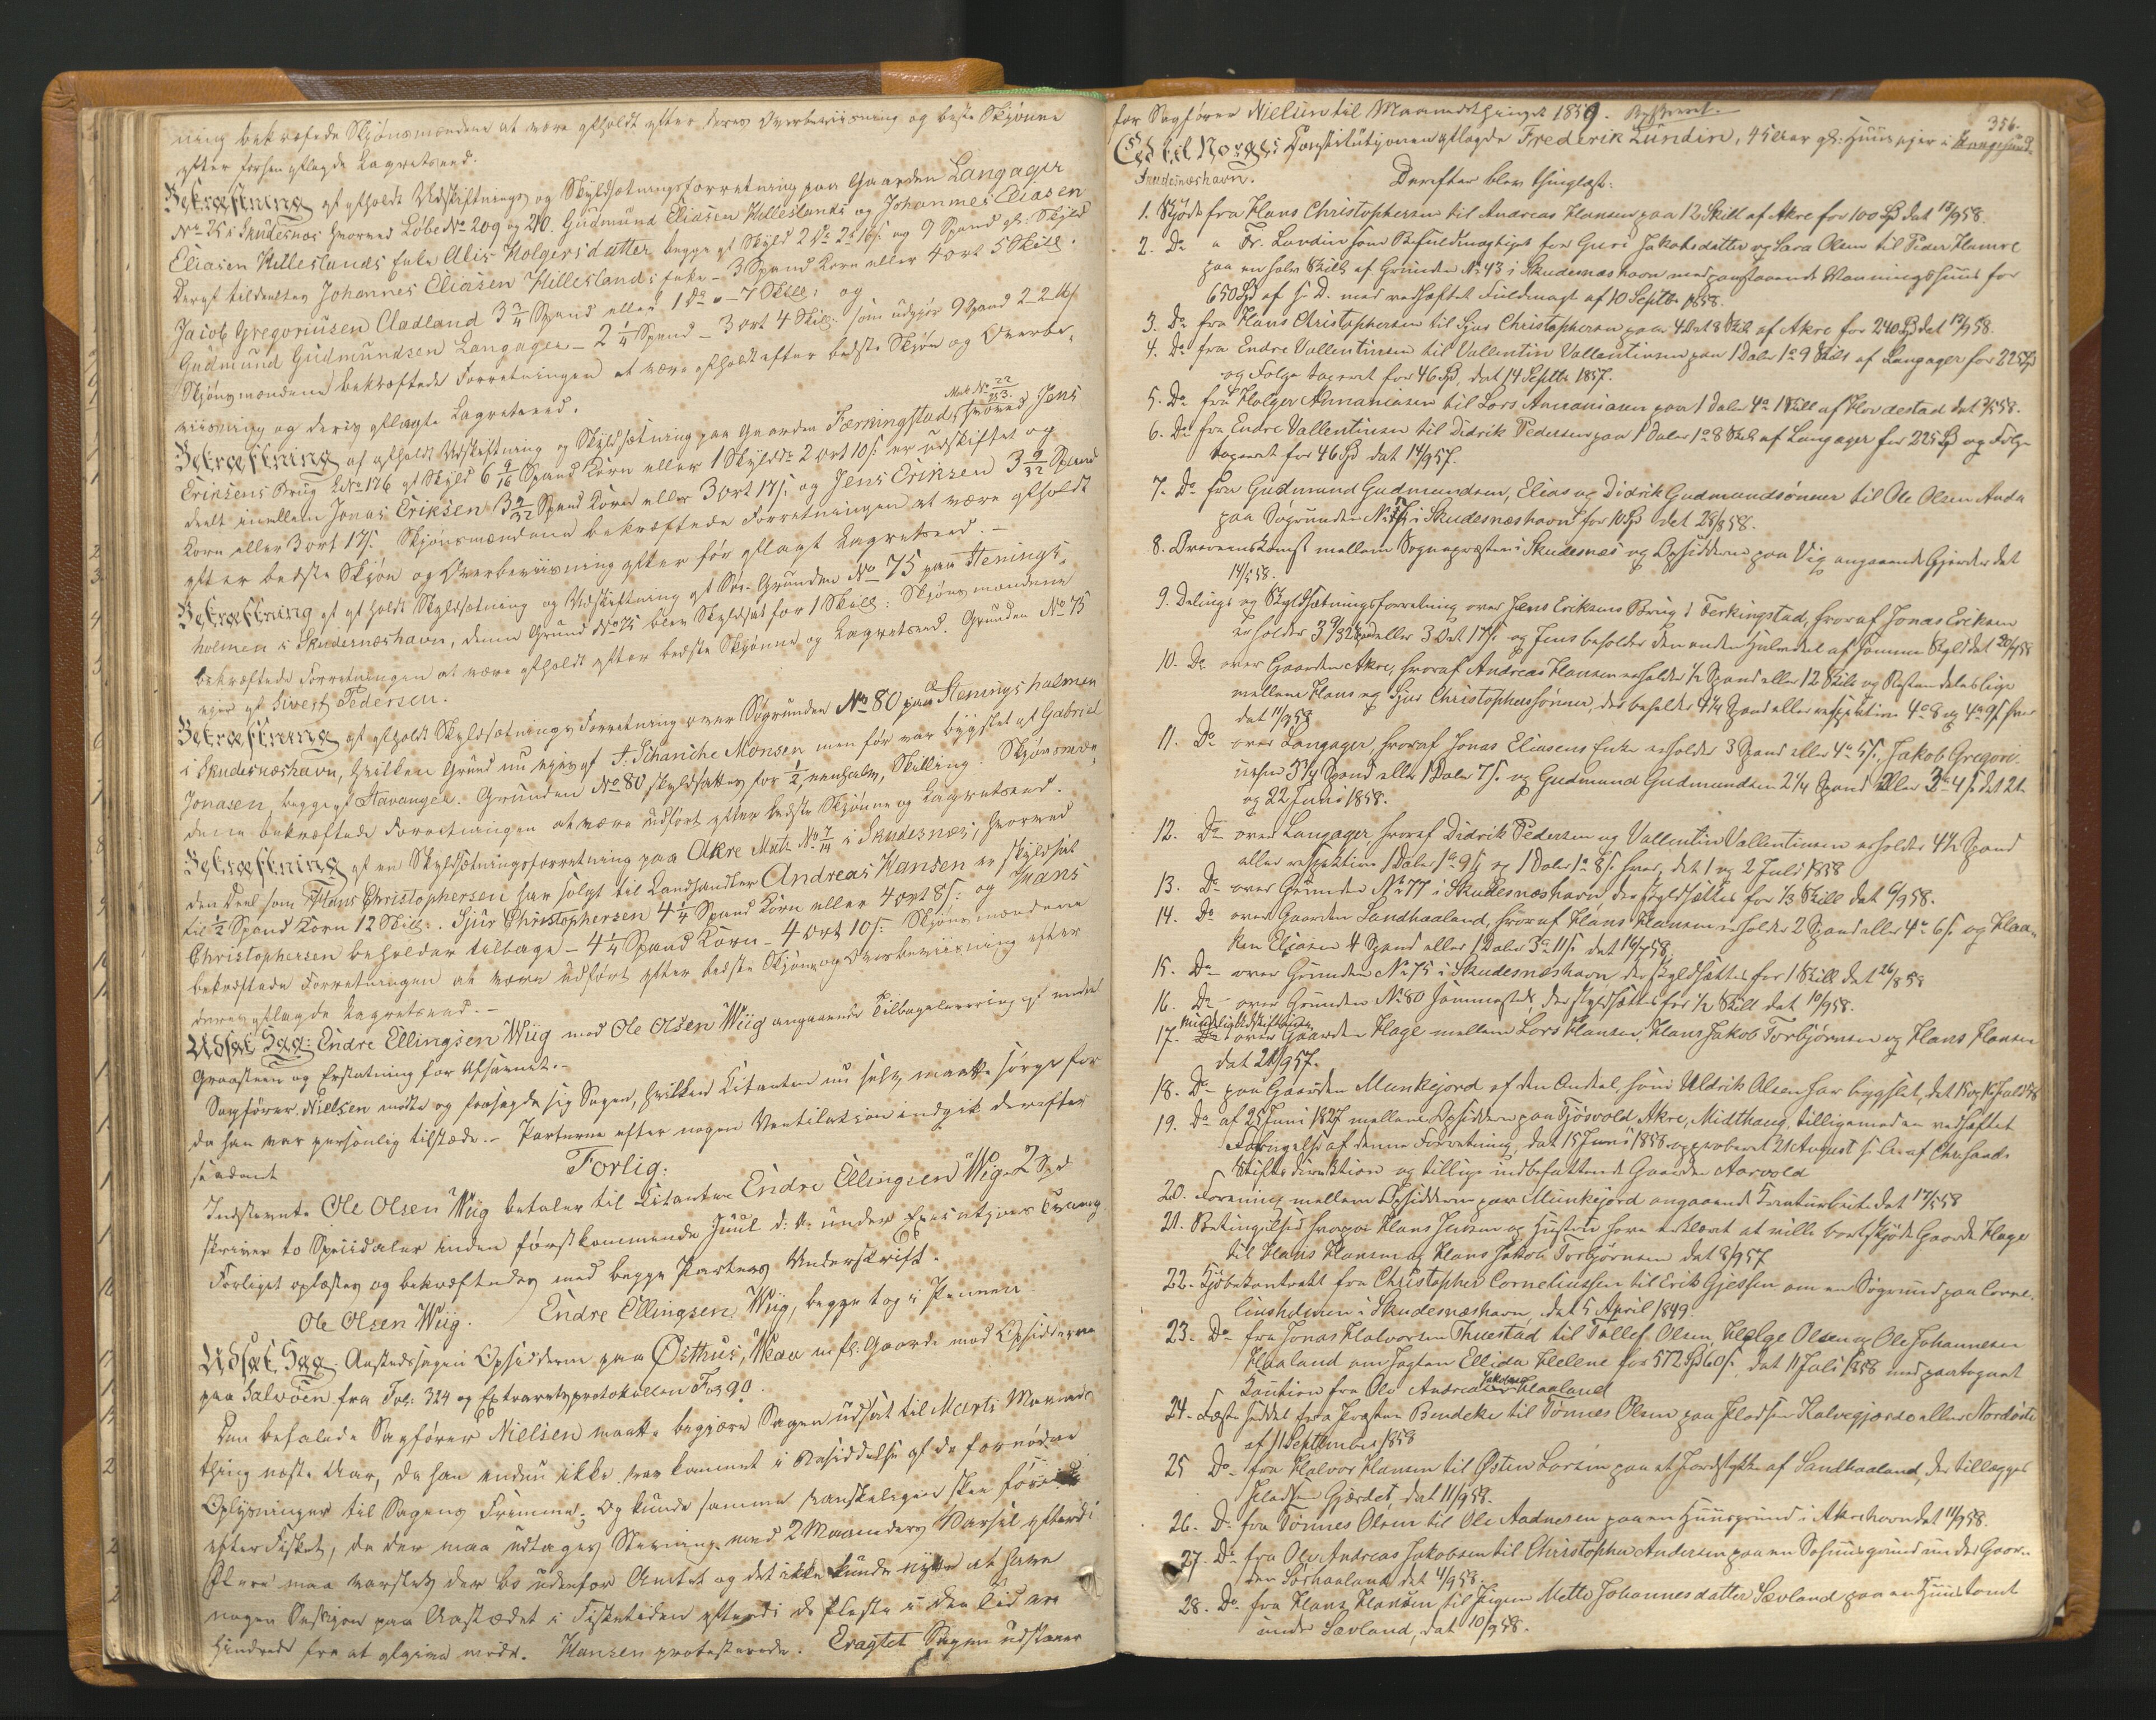 ning bekræftede Skjønsmændene at være afholdt efter deres Overbeviisning og beste Skjønne
efter forhen aflagde Lagretseed.
Bekræftning af afholdt Udskiftnings og Skyldsætningsforretning paa Gaarden Langager
No 25 i Skudesnæs hvorved Løbe No 209 og 210. Gudmund Eliasen Hilleslands og Johannes Eliasen
Eliasen Hilleslands Enke Alis Holgersdatter begge af Skyld 2 Dr 2 ort 16 s. og 9 Spand gl: Skyld
Deraf tildeeltes Johannes Eliasen Hilleslands Enke - 3 Spand Korn eller 4 ort 5 Skill.
Jacob Gregoriusen Aadland 3 3/4 Spand eller 1 Dr " - 7 Skill: og
Gudmund Gudmundsen Langager - 2 1/4 Spand - 3 ort 4 Skill: som udgjør 9 Spand 2-2-16 s.
Skjønsmændene bekræftede Forretningen at være afholdt efter bedste Skjøn og Overbe-
viisning og deres aflagte Lagretseed.
Matr No 22/253.
Bekræftning af afholdt Udskiftning og Skyldsætning paa Gaarden Færkingstad, hvorved Jens
Eriksens Brug LNo 176 af Skyld 6 9/16 Spand Korn eller 1 Skylddr 2 ort 10 s. er udskiftet og
deelt imellem Jonas Eriksen 3 9/32 Spand Korn eller 3 ort 17 s. og Jens Eriksen 3 9/32 Spand
Korn eller 3 ort 17 s. Skjønsmændene bekræftede Forretningen at være afholdt
efter bedste Skjøn og Overbeviisning efter før aflagt Lagretseed. -
Bekræftning af afholdt Skyldsætning og Udskiftning af Søe-Grunden No 75 paa Stenings-
holmen i Skudesnæshavn, denne Grund No 75 blev Skyldsat for 1 Skill: Skjønsmændene
bekræftede Forretningen at være afholdt efter bedste Skjønne og Lagretseed. Grunden No 75
ejes af Sivert Pedersen.
Bekræftning af afholdt Skyldsætnings Forretning over Søgrunden No 80 paa Steningsholmen
i Skudesnæshavn, hvilken Grund nu ejes af T. Schanche Monsen men før var bygslet af Gabriel
Jonasen, begge af Stavanger. Grunden No 80 skyldsattes for 1/2, en halv, Skilling. Skjønsmæn-
dene bekræftede Forretningen at være udført efter bedste Skjønne og Lagretseed.
Bekræftning af en Skyldsætningsforretning paa Akre Matr No 7/14 i Skudesnæs, hvorved
den Deel som Hans Christophersen har solgt til Landhandler Andreas Hansen er skyldsat
til 1/2 Spand Korn 12 Skill:. Sjur Christophersen 4 1/4 Spand Korn eller 4 ort 8 s: og Hans
Christophersen beholder tilbage - 4 1/4 Spand Korn - 4 ort 10 s: Skjønsmændene
bekræftede Forretningen at være udført efter bedste Skjøn og Overbeviisning efter
deres aflagde Lagretseed. -
Udsat Sag: Endre Ellingsen Wiig mod Ole Olsen Wiig angaaende Tilbagelevering af endeel
Graasteen og Erstatning for Afsavnet. -
Sagfører Nielsen mødte og frasagde sig Sagen, hvilken Citanten nu selv maatte sørge for
da han var personlig tilstæde. - Parterne efter nogen Ventilation indgik derefter
saadant
Forlig:
Indstevnte Ole Olsen Wiig betaler til Citanten Endre Ellingsen Wiig 2 Spd
skriver to Speciedaler inden førstkommende Juul d: A: under Executions Tvang.
Forliget oplæstes og bekræftedes med begge Parters Underskrift.
Ole Olsen Wiig. Endre Ellingsen Wiig, begge tog i Pennen
Udsat Sag. Aastedssagen Opsidderne paa Østhus, Weau m fl: Gaarde mod Opsidderne
paa Salvøen fra Fol: 324 og Extraretsprotokollen Fo 90.
Den befalede Sagfører Nielsen maatte begjære Sagen udsat til Marts Maaneds
thing næste Aar, da han endnu ikke var kommet i Besiddelse af de fornødne
Oplysninger til Sagens Fremme; Og kunde samme vanskeligen skee førend
efter Fisket, da der maa udtages Stevning med 2 Maaneders Varsel efterdi
flere maa varsles der bo udenfor Amtet og det ikke kunde nytte at have
nogen Session paa Aastædet i Fisketiden efterdi de fleste i den Tid ere
hindrede fra at afgive møde. Hansen protesterede. Eragtet Sagen udstaaer
356.
for Sagfører Nielsen til Maanedsthinget 1859.
Ed til Norges Constitutionen aflagde Frederik Lundin, 45 Aar gl: Huusejer i
Skudesnæshavn.
Derefter blev thinglæst:
1. Skjøde fra Hans Christophersen til Andreas Hansen paa 12 Skill af Akre for 100 Spd dat 18/9 58.
2. Do " Fr. Lundin som Befuldmægtiget for Guri Jakobsdatter og Sara Olsen til Peder Hamre
paa en halv Skill af Grunden No 43 i Skudesnæshavn med paastaaende Vaaningshuus for
650 Spd af s. D. med vedhæftet Fuldmagt af 10 Septbr 1858.
3. Do fra Hans Christophersen til Sjur Christophersen paa 4 Ort 8 Skill af Akre for 240 Spd dat 18/9 58.
4. Do fra Endre Vallentinsen til Vallentin Vallentinsen paa 1 Daler 1 o 9 Skill af Langager for 225 Spd
og Folge taxeret for 46 Spd, dat 14 Septbr 1857.
5. Do fra Holger Ananiasen til Lars Ananiasen paa 1 Daler 4 o 1 Skill af Hovdestad dat 2/5 58.
6. Do fra Endre Vallentinsen til Didrik Pedersen paa 1 Daler 1 o 8 Skill af Langager for 225 Spd og Folge
taxeret for 46 Spd dat 14/9 57.
7. Do fra Gudmund Gudmundsen, Elias og Didrik Gudmundsønner til Ole Olsen Aada
paa Søgrunden No i Skudesnæshavn for 10 Spd dat 28/8 58.
8. Overeenskomst mellem Sognepræsten i Skudesnæs og Opsidderne paa Vig angaaende Gjerder dat
14/5 58.
9. Delings og Skyldsætningsforretning over Jens Eriksens Brug i Ferkingstad, hvoraf Jonas Eriksen
erholder 3 9/32 Spand eller 3 Ort 17 s. og Jens beholder den anden Halvdeel af samme Skyld dat 20/9 58
10. Do over Gaarden Akre, hvoraf Andreas Hansen erholder 1/2 Spand eller 12 Skill og Resten deles lige
mellem Hans og Sjur Christophersønner, der beholder 4 1/4 Spand eller respective 4 o 8 og 4 o 9 s. hver
dat 11/9 58
11. Do over Langager, hvoraf Jonas Eliasens Enke erholder 3 Spand eller 4 o 5 s., Jakob Gregori-
usen 3 3/4 Spand eller 1 Daler 7 s. og Gudmund Gudmundsen 2 1/4 Spand eller 3 o 4 s. dat 21.
og 22 Juni 1858.
12. Do over Langager, hvoraf Didrik Pedersen og Vallentin Vallentinsen erholder 4 1/2 Spand
eller respektive 1 Daler 1 o 9 s og 1 Daler 1 o 8 s. hver, dat 1 og 2 Juli 1858
13. Do over Grunden No 77 i Skudesnæshavn, der skyldsættes for 1/3 Skill dat 6/9 58.
14. Do over Gaarden Sandhaaland, hvoraf Hans Hansen erholder 2 Spand eller 4 o 6 s. og Haa-
ken Eliasen 4 Spand eller 1 Daler 3 o 11 s. dat 16/7 58.
15. Do over Grunden No 75 i Skudesnæshavn, der skyldsættes for 1 Skill dat 26/8 58
16. Do over Grunden No 80 sammesteds, der skyldsættes for 1/2 Skill dat 10/9 58.
Mindelig Udskiftning
17. over Gaarden Hage mellem Lars Hansen, Hans Jakob Torbjørnsen og Hans Hansen
dat 21/9 57.
18. Do paa Gaarden Munkejord af den Andeel, som Uldrik Olsen har bygslet, dat 15 og 16 Juli 58
19. Do af 25 Juni 1827 mellem Opsidderne paa Tjøsvold, Akre, Midthaug, tilligemed en vedhæftet
Fornyelse af denne Forretning, dat 15 Juni 1858 approberet 21 August s. A. af Chrsands
Stiftsdirektion og tillige indbefattende Gaarden Aarvold
20. Forening mellem Opsidderne paa Munkejord angaaende dat 17/5 58
21. Betingelser hvorpaa Hans Jensen og Hustru have erklæret at ville bortskjøde Gaarden Hage
til Hans Hansen og Hans Jakob Torbjørnsen dat 8/9 57
22. Kjøbekontrakt fra Christopher Corneliussen til Erik Gjessen om en Søgrund paa Corne-
liusholmen i Skudesnæshavn, dat 5 April 1849
23. Do fra Jonas Halvorsen Thuestad til Tollef Olsen, Helge Olsen og Ole Johannesen
Haaland om Jagten Ellida Helene for 572 Spd 60 s. dat 11 Juli 1858 med paategnet
Kaution fra Ole Andreas Jakobsen Haaland
24. Fæsteseddel fra Præsten Bendeke til Tønnes Olsen paa Pladsen Kalvegjærde eller Nordøde
af 11 September 1858
25 Do fra Halvor Hansen til Østen Larsen paa et Jordstykke af Sandhaaland, der tillægges
Pladsen Gjærdet, dat 11/9 58.
26. Do fra Tønnes Olsen til Ole Aadnesen paa en Huusgrund i Akrehavn dat 11/9 58.
27. Do fra Ole Andreas Jakobsen til Christopher Andersen paa en Søhuusgrund under Gaar-
den Sørhaaland dat 4/9 58.
28. Do fra Hans Hansen til Pigen Mette Johannesdatter Sævland paa en Huustomt
under Sævland, dat 10/9 58.